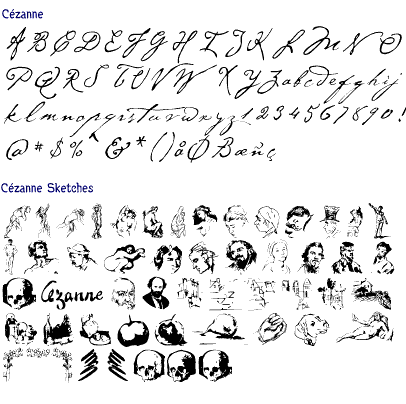 Cézanne
A B C D E F G H I J K L M N O
P Q R S T U V W X Y Z a b c d e f g h i j
k l m n o p q r s t u v w x y z 1 2 3 4 5 6 7 8 9 0 !
@ * $ % ^ & * ( ) å Ø B æ ñ ç
Cézanne Sketches
Cézanne